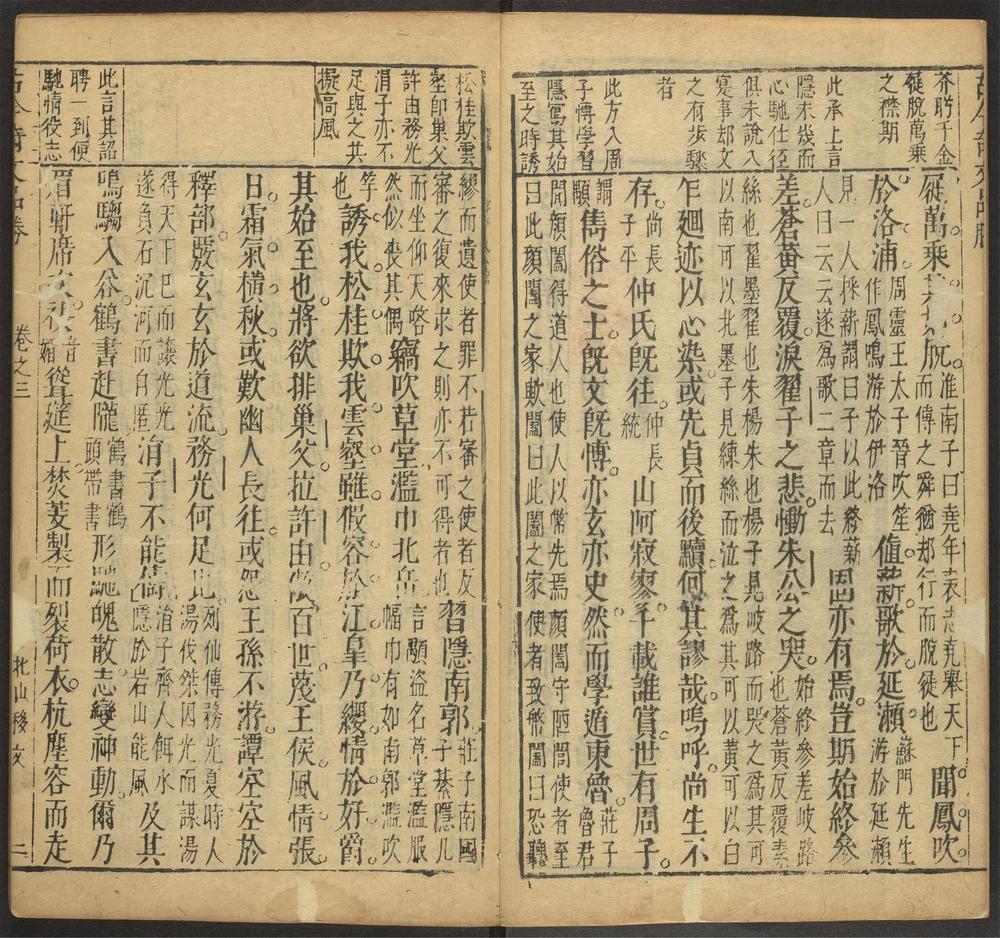 芥𦕈千金
屣脫萬乘
之襟期
此承上言
隱未幾而
心馳仕徑
俱未說入
寔事却文
之有步驟
者
此方入周
子慱學習
隱寫其始
至之時誘
屣萬乘其如脫淮南子曰堯年衰志堯舉天下而傳之舜猶却行而脫徙也聞鳳吹
於洛浦周靈王太子晉吹笙作鳳鳴游於伊洛值薪歌於延瀨蘇門先生游於延瀨
見一人採薪謂曰子以此終薪人曰云云遂爲歌二章而去固亦有焉豈期始終參
差蒼黃反覆淚翟子之悲慟朱公之哭始終參差岐路也蒼黃反覆素
絲也翟墨翟也朱楊朱也楊子見岐路而哭之爲其可以南可以北墨子見練絲而泣之爲其可以黃可以白
乍廻迹以心染或先貞而後黷何其謬哉嗚呼尚生不
存尚長子平仲氏旣往仲長統山阿寂寥千載誰賞世有周子
謂顒雋俗之士旣文旣慱亦玄亦史然而學遁東魯莊子魯君
聞顏闔得道人也使人以幣先焉顏闔守陋閭使者至曰此顏闔之家歟闔曰此闔之家使者致幣闔曰恐聽
松桂欺雲
壑卽巢父
許由務光
涓子亦不
足與之共
擬高風
此言其詔
聘一到便
馳情役志
繆而遺使者罪不若審之使者反審之復來求之則亦不可得者也習隱南郭莊子南國子綦隱几
而坐仰天喀然似喪其偶竊吹草堂濫巾北岳言顒盜名草堂濫服幅巾有如南郭濫吹
竽也誘我松桂欺我雲壑雖假容於江皐乃纓情於好爵
其始至也將欲排巢父拉許由傲百世蔑王侯風情張
日霜氣橫秋或歎幽人長往或怨王孫不游譚空空於
釋部覈玄玄於道流務光何足比列仙傳務光夏時人湯伐桀因光而謀湯
得天下已而讓光光遂負石沉河而自匿涓子不能儔涓子齊人餌水隱於岩山能風及其
鳴騶入谷鶴書赴隴鶴書鶴頭帶書形馳魄散志變神動爾乃
眉軒席次袂聳筵上焚芰製而裂荷衣杭塵容而走
卷之三
北山移文
二